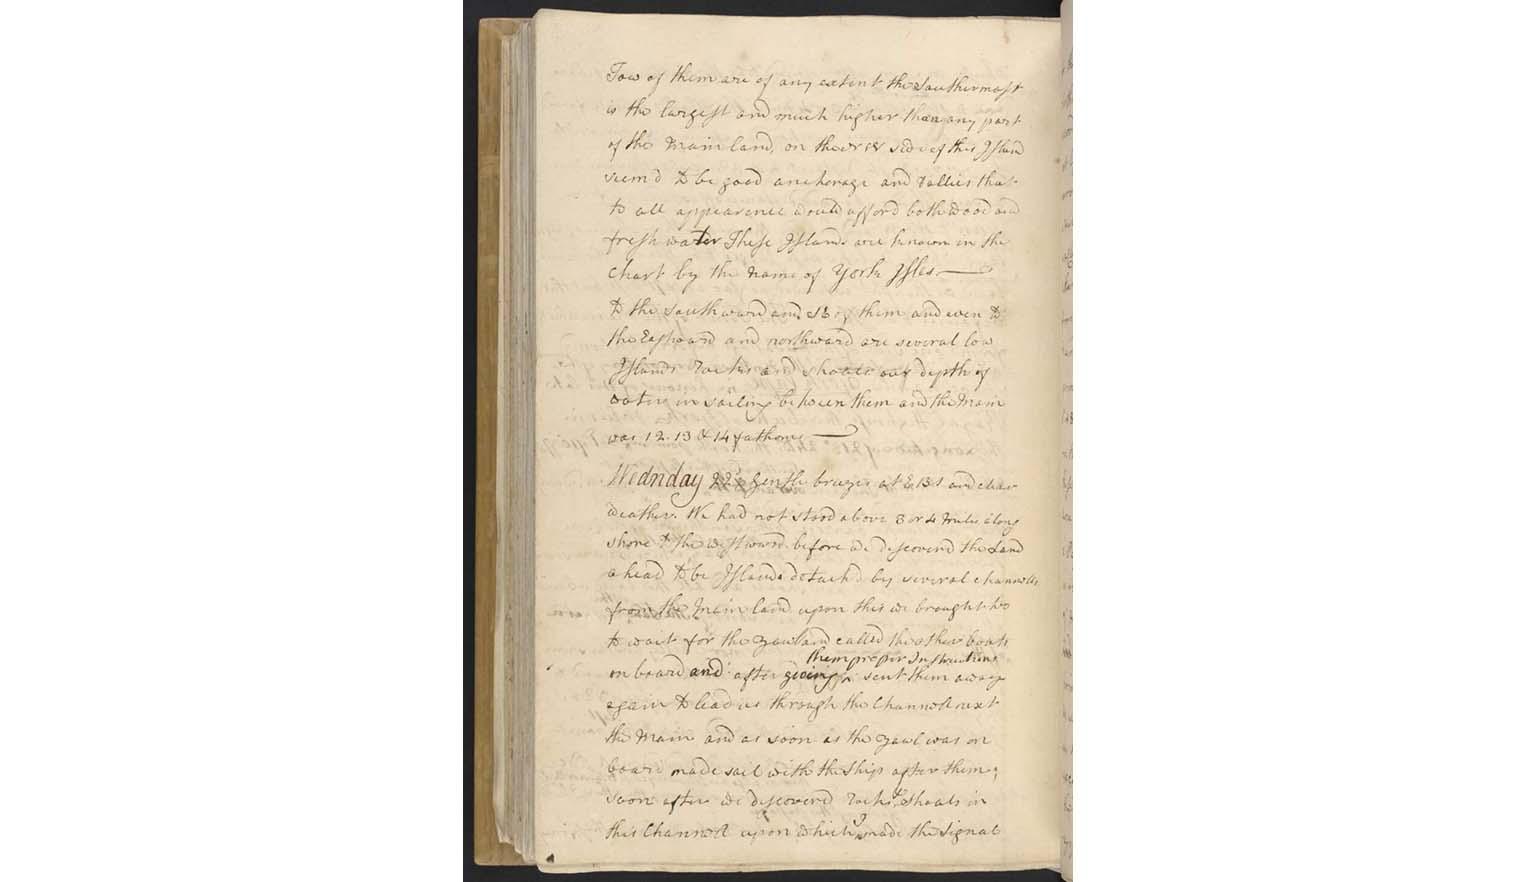 Tow of them are of any extent the Southermost
is the largest and much higher than any part
of the Main land, on the NW side of this Island
seem'd to be good anchorage and Vallies that
to all appearence would afford both Wood and
fresh water These Islands are known in the
Chart by the name of York Isles
to the Southward and SE of them and even to
the Eastward and northward are several low
Islands rocks and shoals our depth of
water in sailing between them and the Main
was 12. 13 & 14 fathoms
Wednday 22d Gentle breezes at EBS and clear
weather. We had not stood above 3 or 4 Miles along
shore to the westward before we discoverd the Land
ahead to be Islands detach'd by several channels
from the Main land upon this we brought to
to wait for the yawl and called the other boats
them proper Instructions
on board and after giving sent them away
again to lead us through the Channell next
the Main and as soon as the yawl was on
board made sail with the Ship after them;
soon after we discoverd rocks & shoals in
this Channell upon which I made the Signal